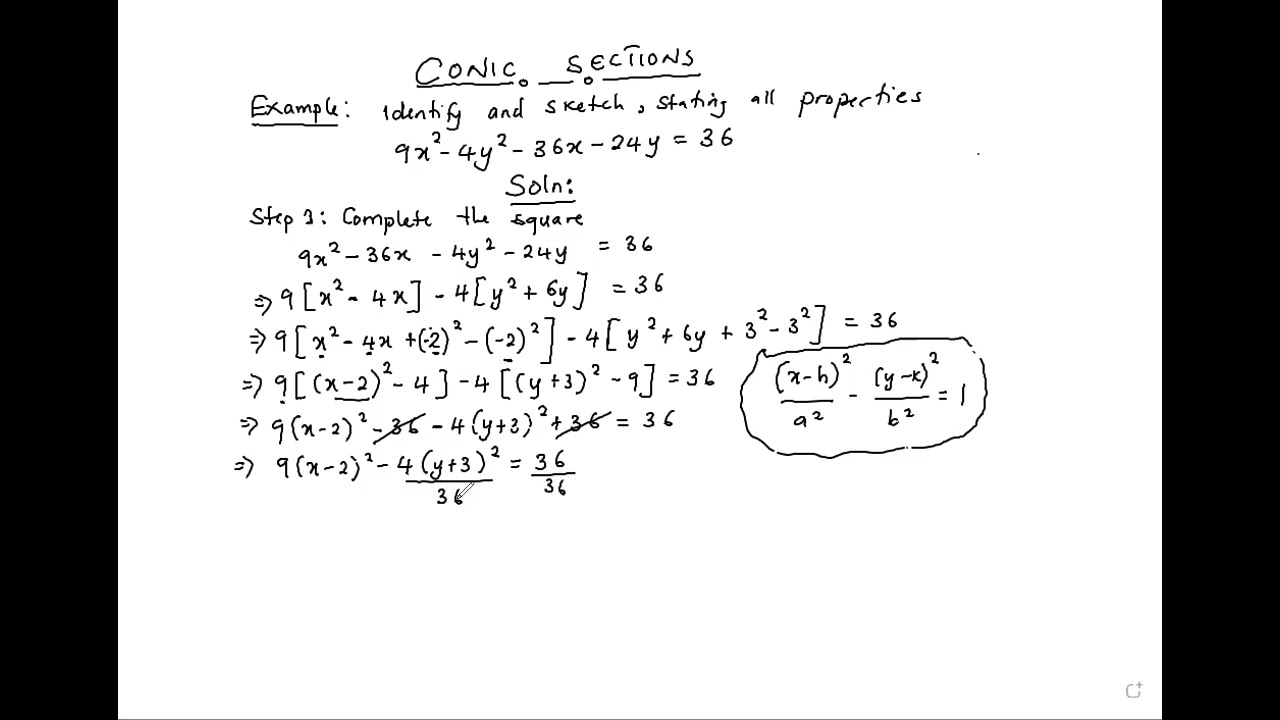 CONIC SECTIONS
Example: Identify and sketch, stating all properties
9x² - 4y² - 36x - 24y = 36
Soln:
Step 1: Complete the square
9x² - 36x - 4y² - 24y = 36
⇒ 9[x² - 4x] - 4[y² + 6y] = 36
⇒ 9[x² - 4x + (-2)² - (-2)²] - 4[y² + 6y + 3² - 3²] = 36
⇒ 9[(x-2)² - 4] - 4[(y+3)² - 9] = 36
(x-h)²/a² - (y-k)²/b² = 1
⇒ 9(x-2)² - 36 - 4(y+3)² + 36 = 36
⇒ 9(x-2)² - 4(y+3)²/36 = 36/36